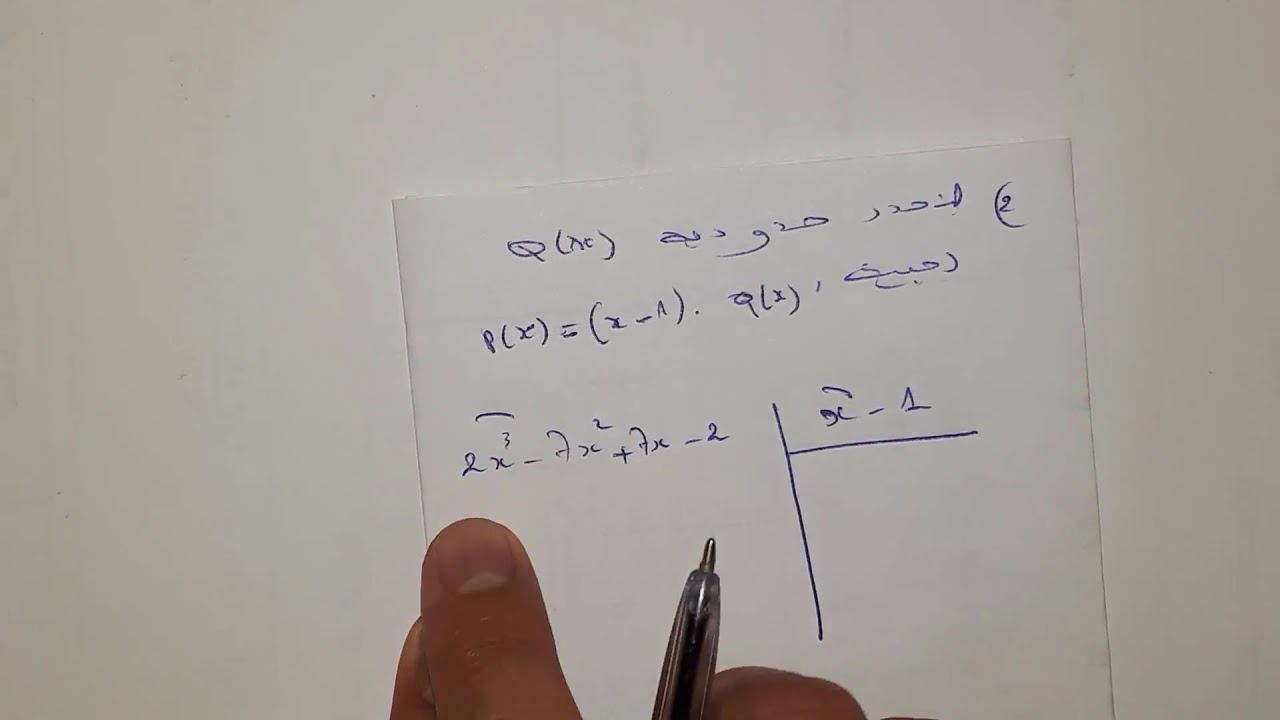 2) لنحدد حدودية Q(x)
بحيث, P(x) = (x-1). Q(x)
2x³ - 7x² + 7x - 2 x - 1